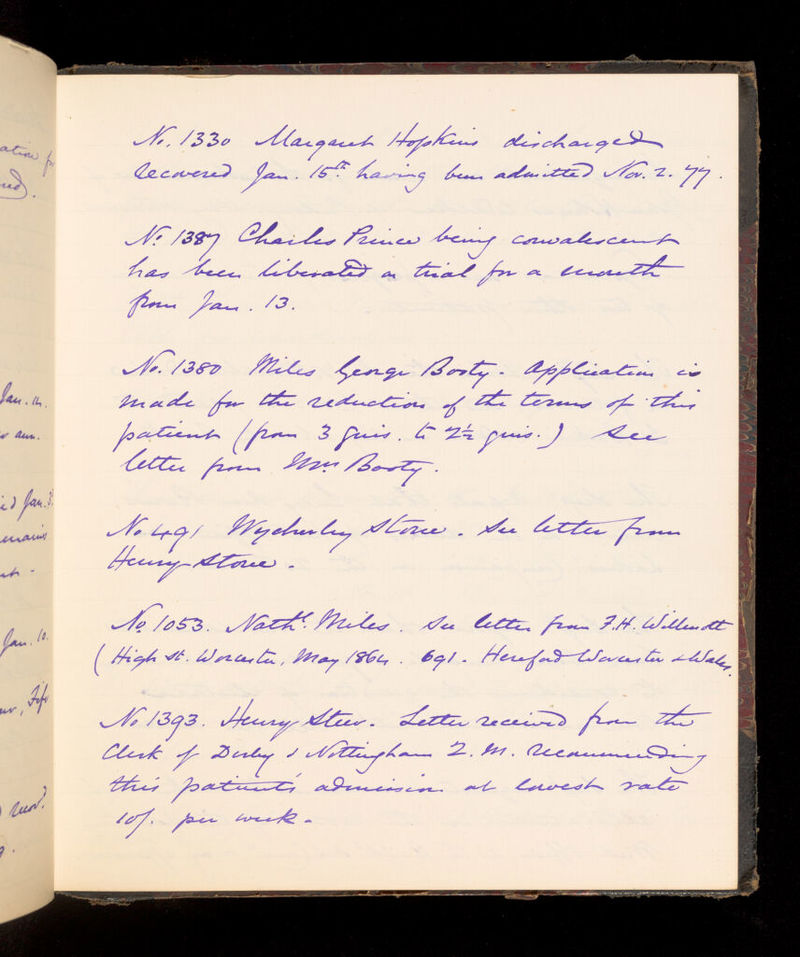 ation fr
red).
Jan. 14.
ann.
Jan.
remains
Jan. 10.
Fife
No. 1330 Margaret Hopkins discharged
recovered Jan. 15th. having been admitted Nov. 2. 77.
No. 1387 Charles Prince being convalescent
has been liberated on trial for a month
from Jan. 13.
No. 1380 Miles George Booty. Application is
made for the reduction of the terms of this
patient (from 3 guis. to 2½ guis.) See
letter from Mrs Booty.
No 491 Wycherley Stone. See letter from
Henry Stone.
No. 1053. Nathl. Miles. See letter from F.H.
(High St. Worcester, May 1864. 691. Hereford Worcester & Wales.
No 1393. Henry Steer. Letter received from the
Clerk of Derby & Nottingham Q. M. recommending
this patient's admission at lowest rate
10/. per week.